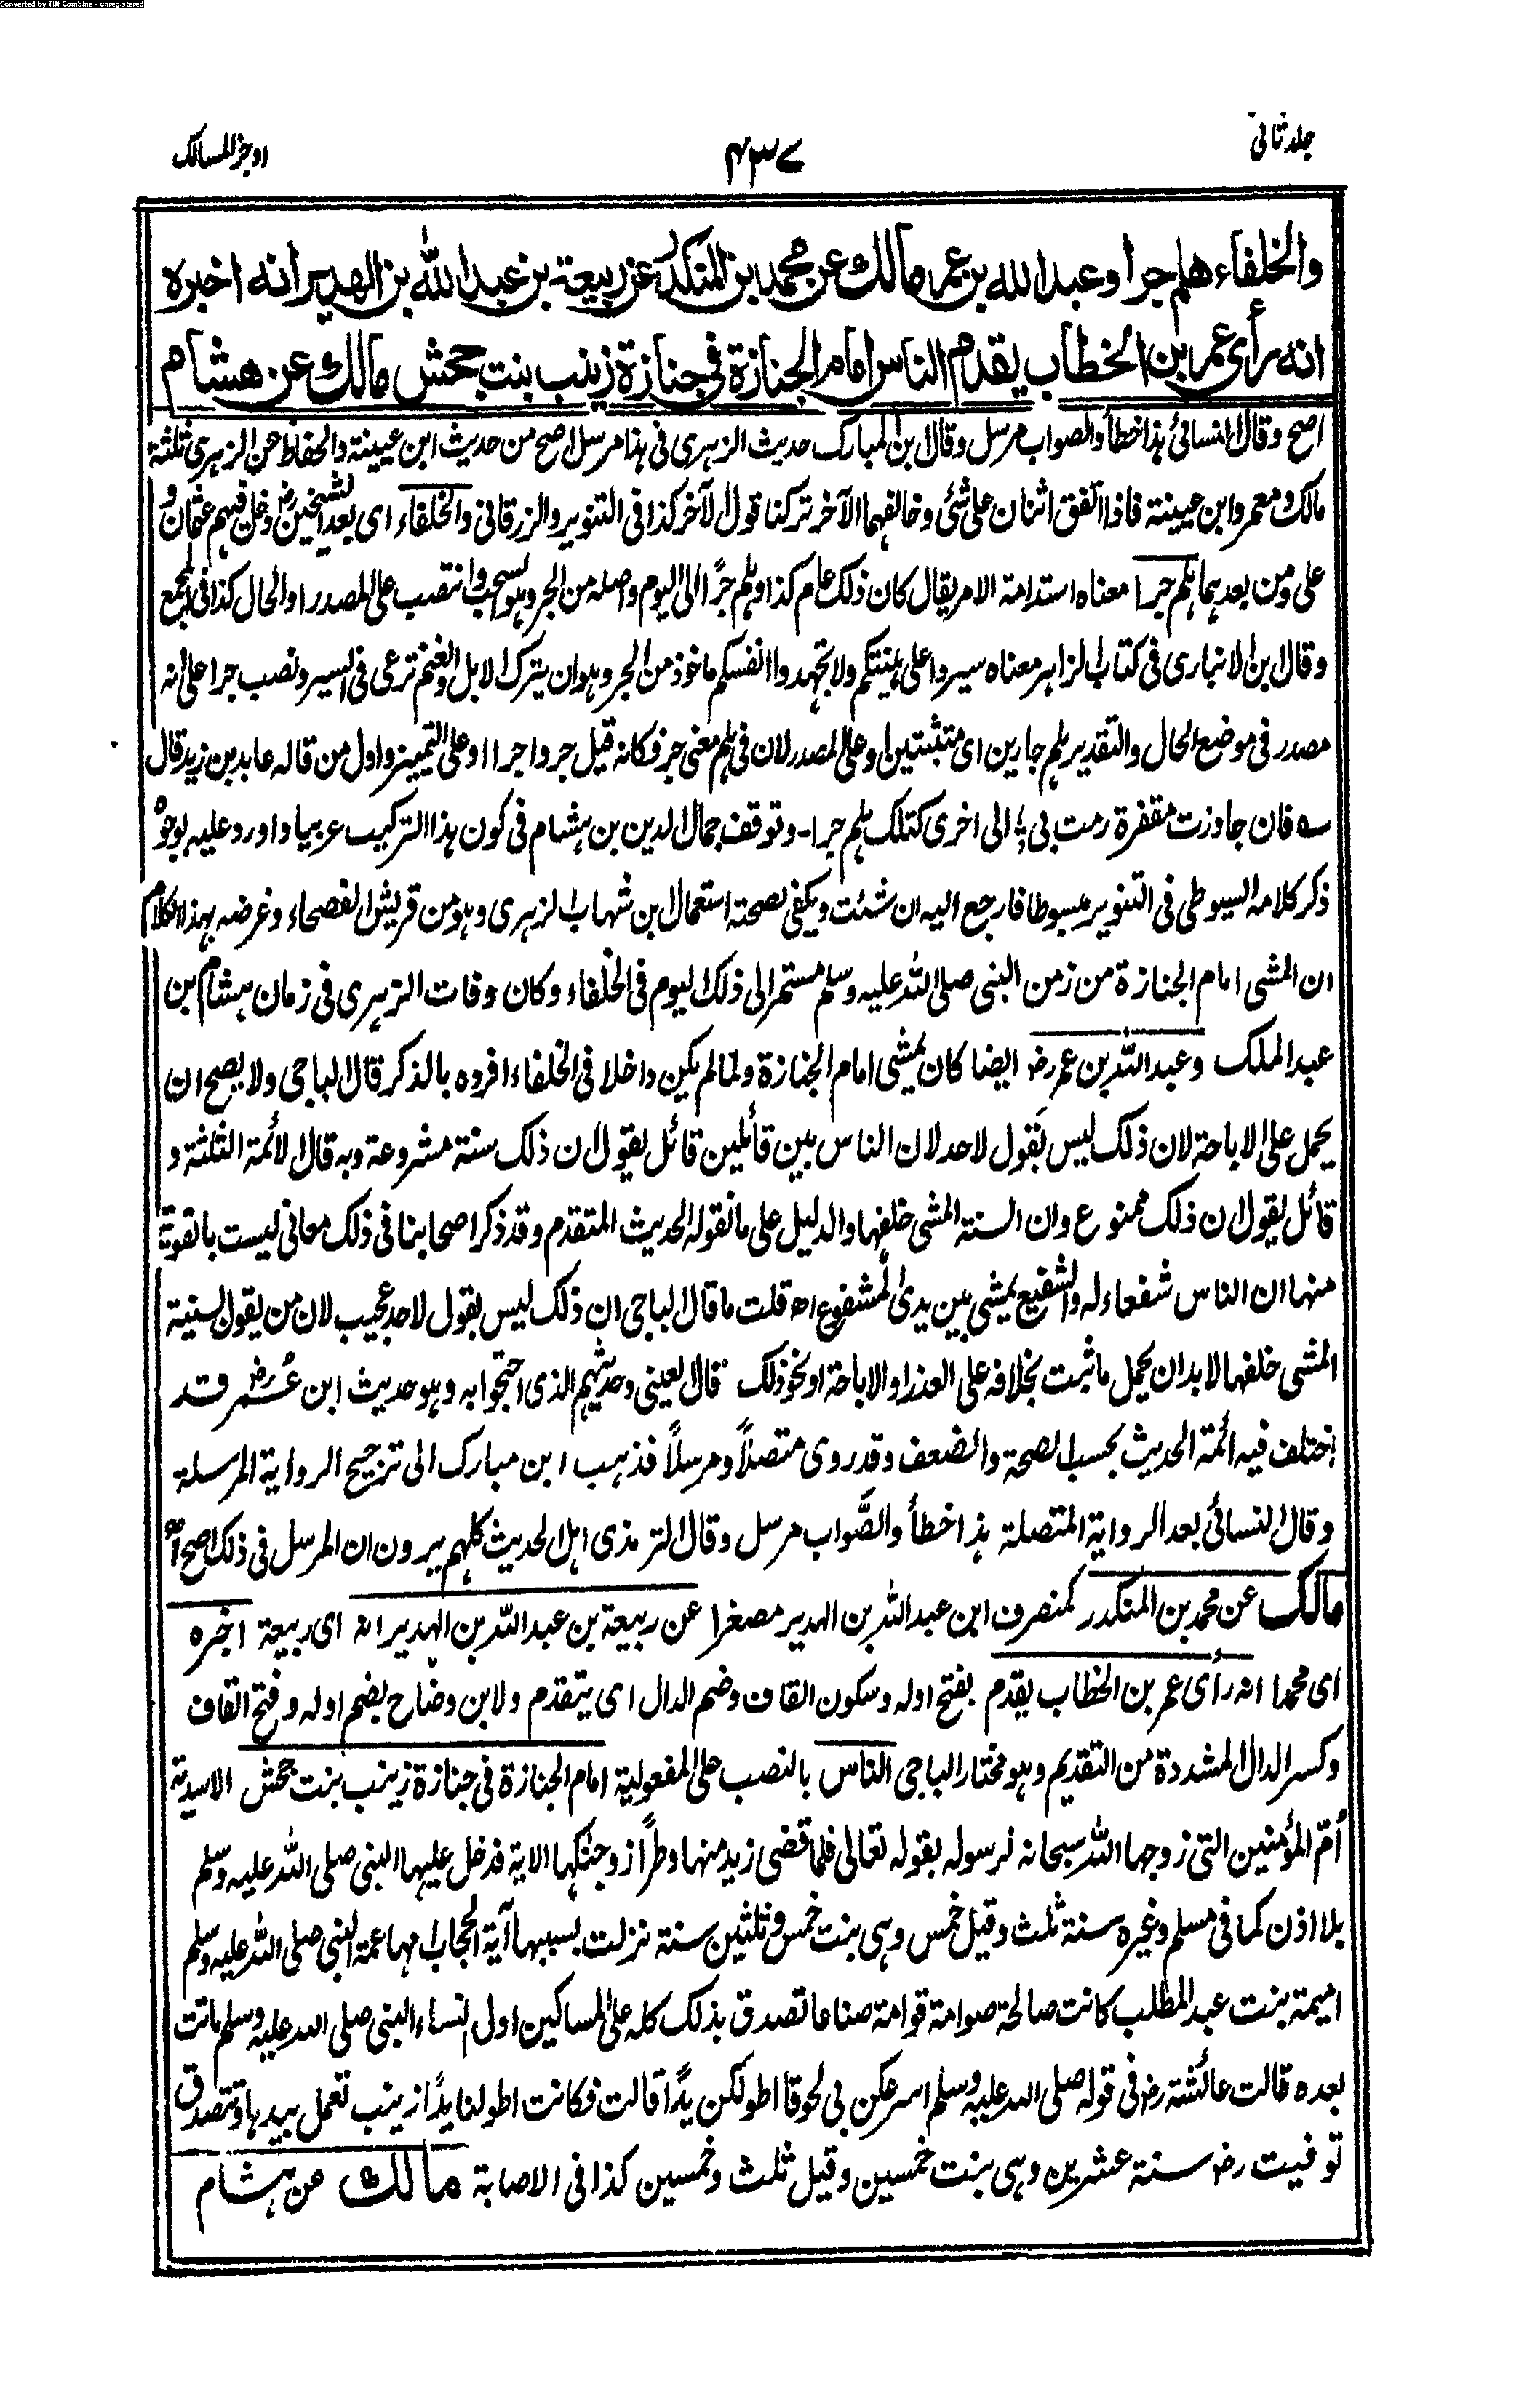 Converted by Tiff Combine - unregistered
جلد ثانی
۴۳۷
اوجز المسالک
والخلفاء هلم جرا وعبد الله بن عمر مالك عن محمد بن المنكدر عن ربيعة بن عبد الله بن الهدير انه اخبره
انه رأى عمر بن الخطاب يقدم الناس امام الجنازة فى جنازة زينب بنت جحش مالك عن هشام
اصح وقال النسائى هذا خطأ والصواب مرسل وقال ابن المبارك حديث الزهرى فى هذا مرسل اصح من حديث ابن عيينة والحفاظ عن الزهرى ثلثة
مالك ومعمر وابن عيينة فاذا اتفق اثنان على شئ وخالفهما الآخر تركنا قول الآخر كذا فى التنوير والزرقانى والخلفاء اى بعد الشيخين رض دخل فيهم عثمان و
على ومن بعدهما هلم جرا معناه استدامة الامر يقال كان ذلك عام كذا وهلم جرًا الى اليوم واصله من الجر وهو السحب وانتصب على المصدر او الحال كذا فى المجمع
وقال ابن الانبارى فى كتاب الزاهر معناه سيروا على هينتكم ولا تجهدوا انفسكم ماخوذ من الجر وهو ان يترك الابل والغنم ترعى فى السير ونصب جرا على انه
مصدر فى موضع الحال والتقدير هلم جارين اى متثبتين او على المصدر لان فى هلم معنى جر فكانه قيل جروا جرا او على التمييز واول من قاله عابد بن زيد قال
؎ فان جاوزت مقفرة رمت بى ؛ الى اخرى كتلك هلم جرا - وتوقف جمال الدين بن هشام فى كون هذا التركيب عربيا واورد عليه بوجوه
ذكر كلامه السيوطى فى التنوير مبسوطا فارجع اليه ان شئت ويكفى لصحته استعمال ابن شهاب الزهرى وهو من قريش الفصحاء وغرضه بهذا الكلام
ان المشى امام الجنازة من زمن النبى صلى الله عليه وسلم مستمر الى ذلك اليوم فى الخلفاء وكان وفات الزهرى فى زمان هشام بن
عبد الملك وعبد الله بن عمر رض ايضا كان يمشى امام الجنازة ولما لم يكن داخلا فى الخلفاء افرده بالذكر قال الباجى ولا يصح ان
يحمل على الاباحة لان ذلك ليس بقول لاحد لان الناس بين قائلين قائل يقول ان ذلك سنة مشروعة وبه قال الائمة الثلثة و
قائل يقول ان ذلك ممنوع وان السنة المشى خلفها والدليل على ما نقوله الحديث المتقدم وقد ذكر اصحابنا فى ذلك معانى ليست بالقوية
منها ان الناس شفعاء له والشفيع يمشى بين يدى المشفوع اھ قلت ما قال الباجى ان ذلك ليس بقول لاحد عجيب لان من يقول بسنية
المشى خلفها لابد ان يحمل ما ثبت بخلافه على العذر او الاباحة او نحو ذلك قال العينى وحديثهم الذى احتجوا به وهو حديث ابن عُمر رض قد
اختلف فيه ائمة الحديث بحسب الصحة والضعف وقد روى متصلًا ومرسلًا فذهب ابن مبارك الى ترجيح الرواية المرسلة
وقال النسائى بعد الرواية المتصلة هذا خطأ والصَّواب مرسل وقال الترمذى اهل الحديث كلهم يرون ان المرسل فى ذلك اصح اھ
مالك عن محمد بن المنكدر كمنصرف ابن عبد الله بن الهدير مصغرا عن ربيعة بن عبد الله بن الهدير انه اى ربيعة اخبره
اى محمدا انه رأى عمر بن الخطاب يقدم بفتح اوله وسكون القاف وضم الدال اى يتقدم ولابن وضاح بضم اوله وفتح القاف
وكسر الدال المشددة من التقديم وهو مختار الباجى الناس بالنصب على المفعولية امام الجنازة فى جنازة زينب بنت جحش الاسدية
أمّ المؤمنين التى زوجها الله سبحانه لرسوله بقوله تعالى فلما قضى زيد منها وطرًا زوجنٰكها الاية فدخل عليها النبى صلى الله عليه وسلم
بلا اذن كما فى مسلم وغيره سنة ثلث وقيل خمس وهى بنت خمس وثلثين سنة نزلت بسببها آية الحجاب امها عمة النبى صلى الله عليه وسلم
اميمة بنت عبد المطلب كانت صالحة صوامة قوامة صناعا تصدق بذلك كله على المساكين اول نساء النبى صلى الله عليه وسلم ماتت
بعده قالت عائشة رض فى قوله صلى الله عليه وسلم اسرعكن بى لحوقا اطولكن يدًا قالت فكانت اطولنا يدًا زينب تعمل بيديها وتتصدق
توفيت رض سنة عشرين وهى بنت خمسين وقيل ثلث وخمسين كذا فى الاصابة مالك عن هشام